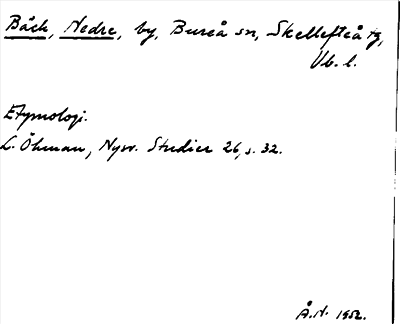 Bäck, Nedre, by, Bureå sn, Skellefteå tg,
Vb. l.
Etymologi.
L. Öhman, Nysv. Studier 26, s. 32.
Å.N. 1952.